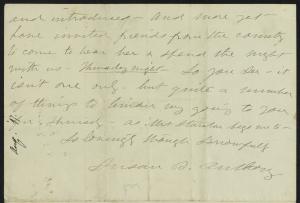 and introduce - and more yet
have invited friends from the country
to come to hear her & spend the night
with us - Thursday night - So you see - it
isn't one only - but quite a number
of things to hinder my going to you
Thursday - as Mrs Stanton begs me to -
So lovingly though
Susan B. Anthony